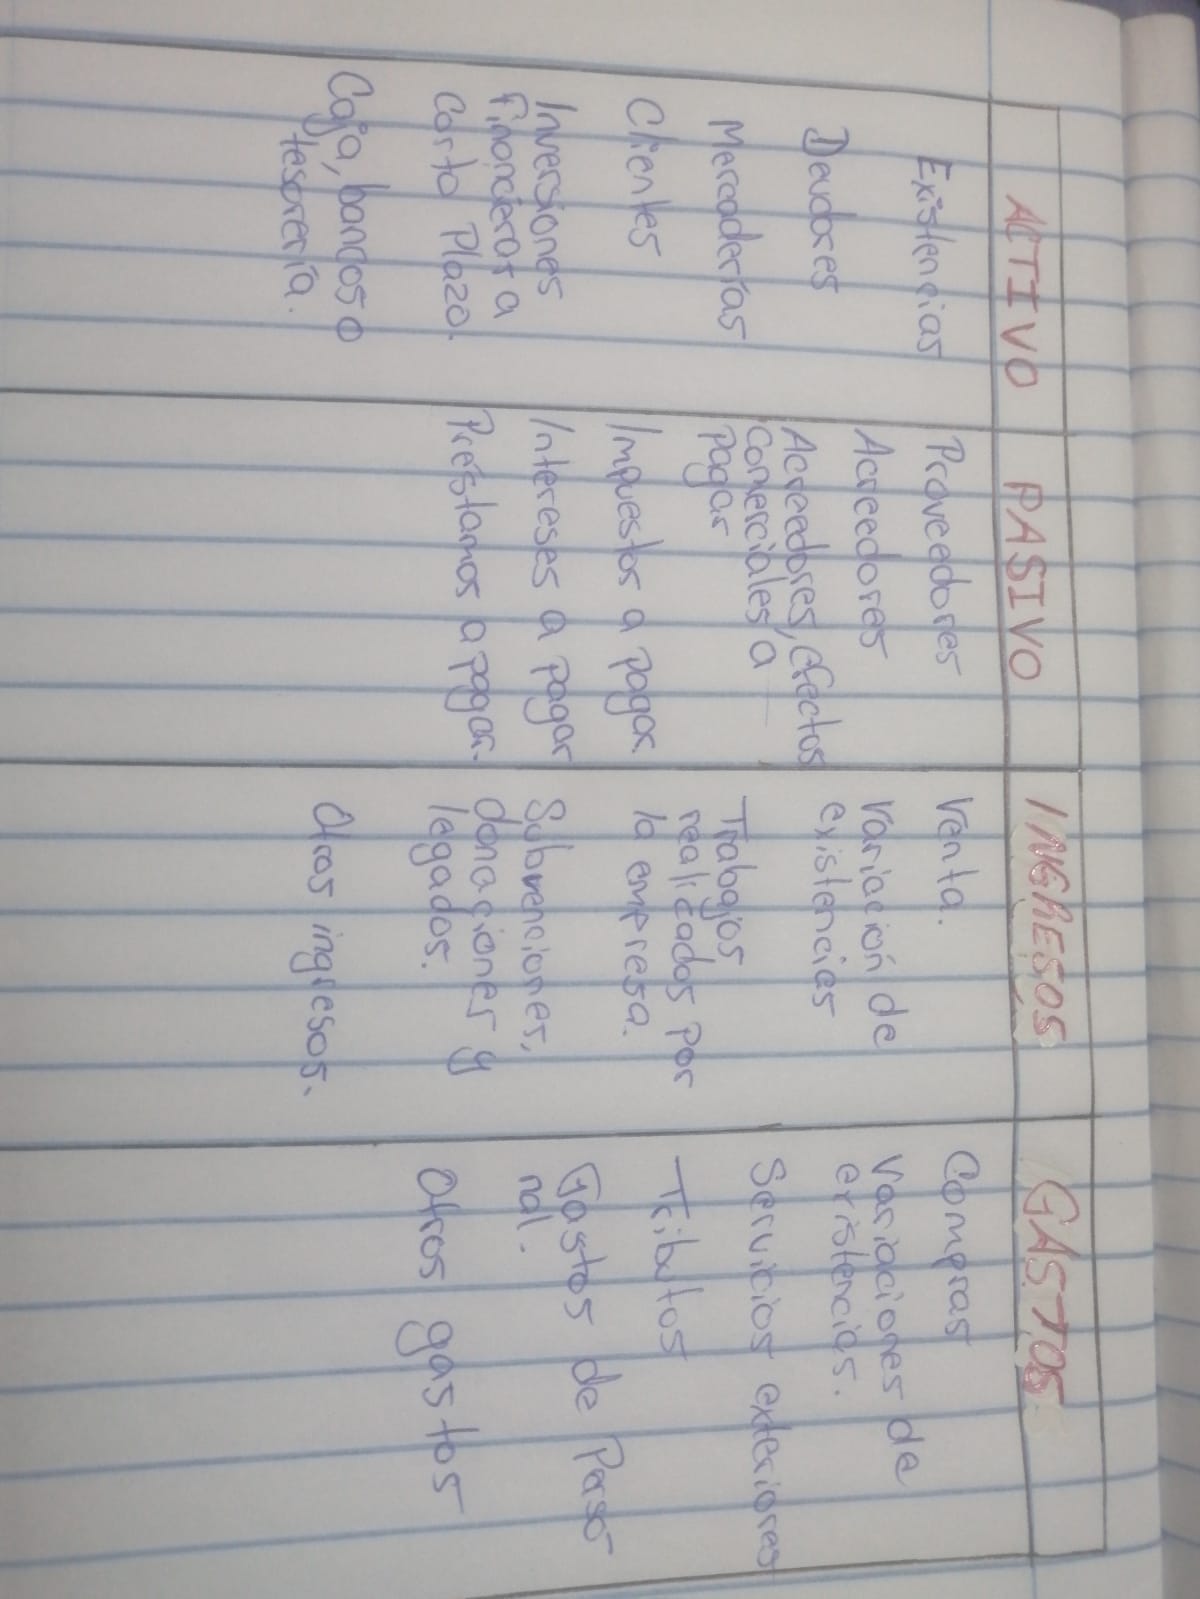 ACTIVO
Existencias
Deudores
Mercaderías
Clientes
Inversiones
financieras a
Corto Plazo.
Caja, bancos o
tesorería.
PASIVO
Proveedores
Acreedores
Acreedores, efectos
Comerciales a
pagar
Impuestos a pagar.
Intereses a pagar
Préstamos a pagar.
INGRESOS
Venta.
Variación de
existencias
Trabajos
realizados por
la empresa.
Subvenciones,
donaciones y
legados.
Otros ingresos.
GASTOS
Compras
Variaciones de
existencias.
Servicios exteriores
Tributos
Gastos de Perso
nal.
Otros gastos